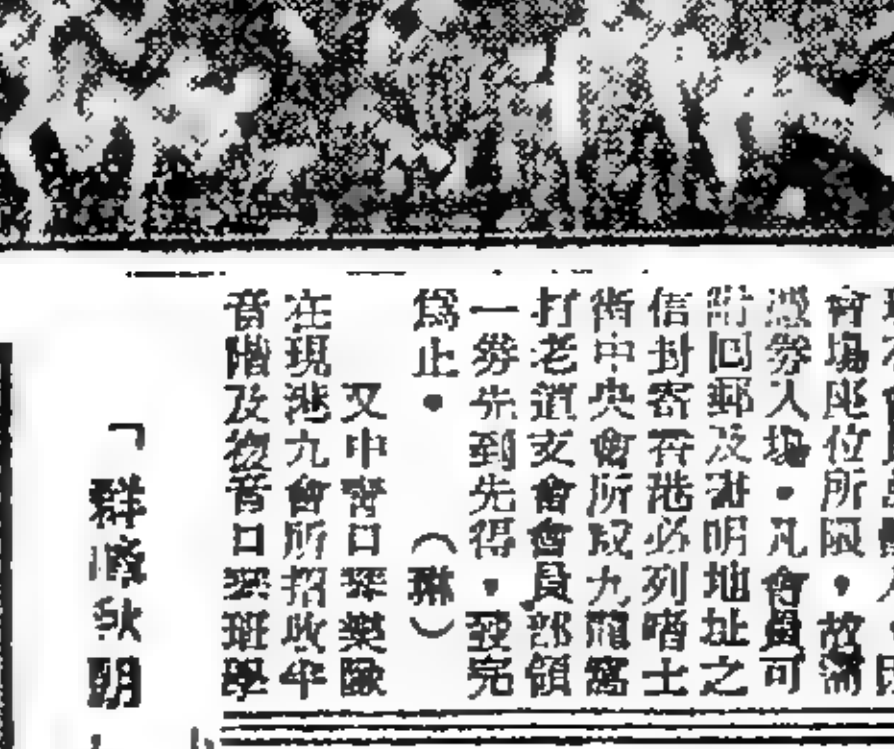 會場座位所限，故需
憑券入場•凡會員可
附回郵及書明地址之
信封寄香港必列啫士
街中央會所或九龍窩
打老道支會會員部領
一券先到先得，發完
為止•（琳）
又中青口琴樂隊
在現港九會所招收半
音階及複音口琴班學
「群 秋明